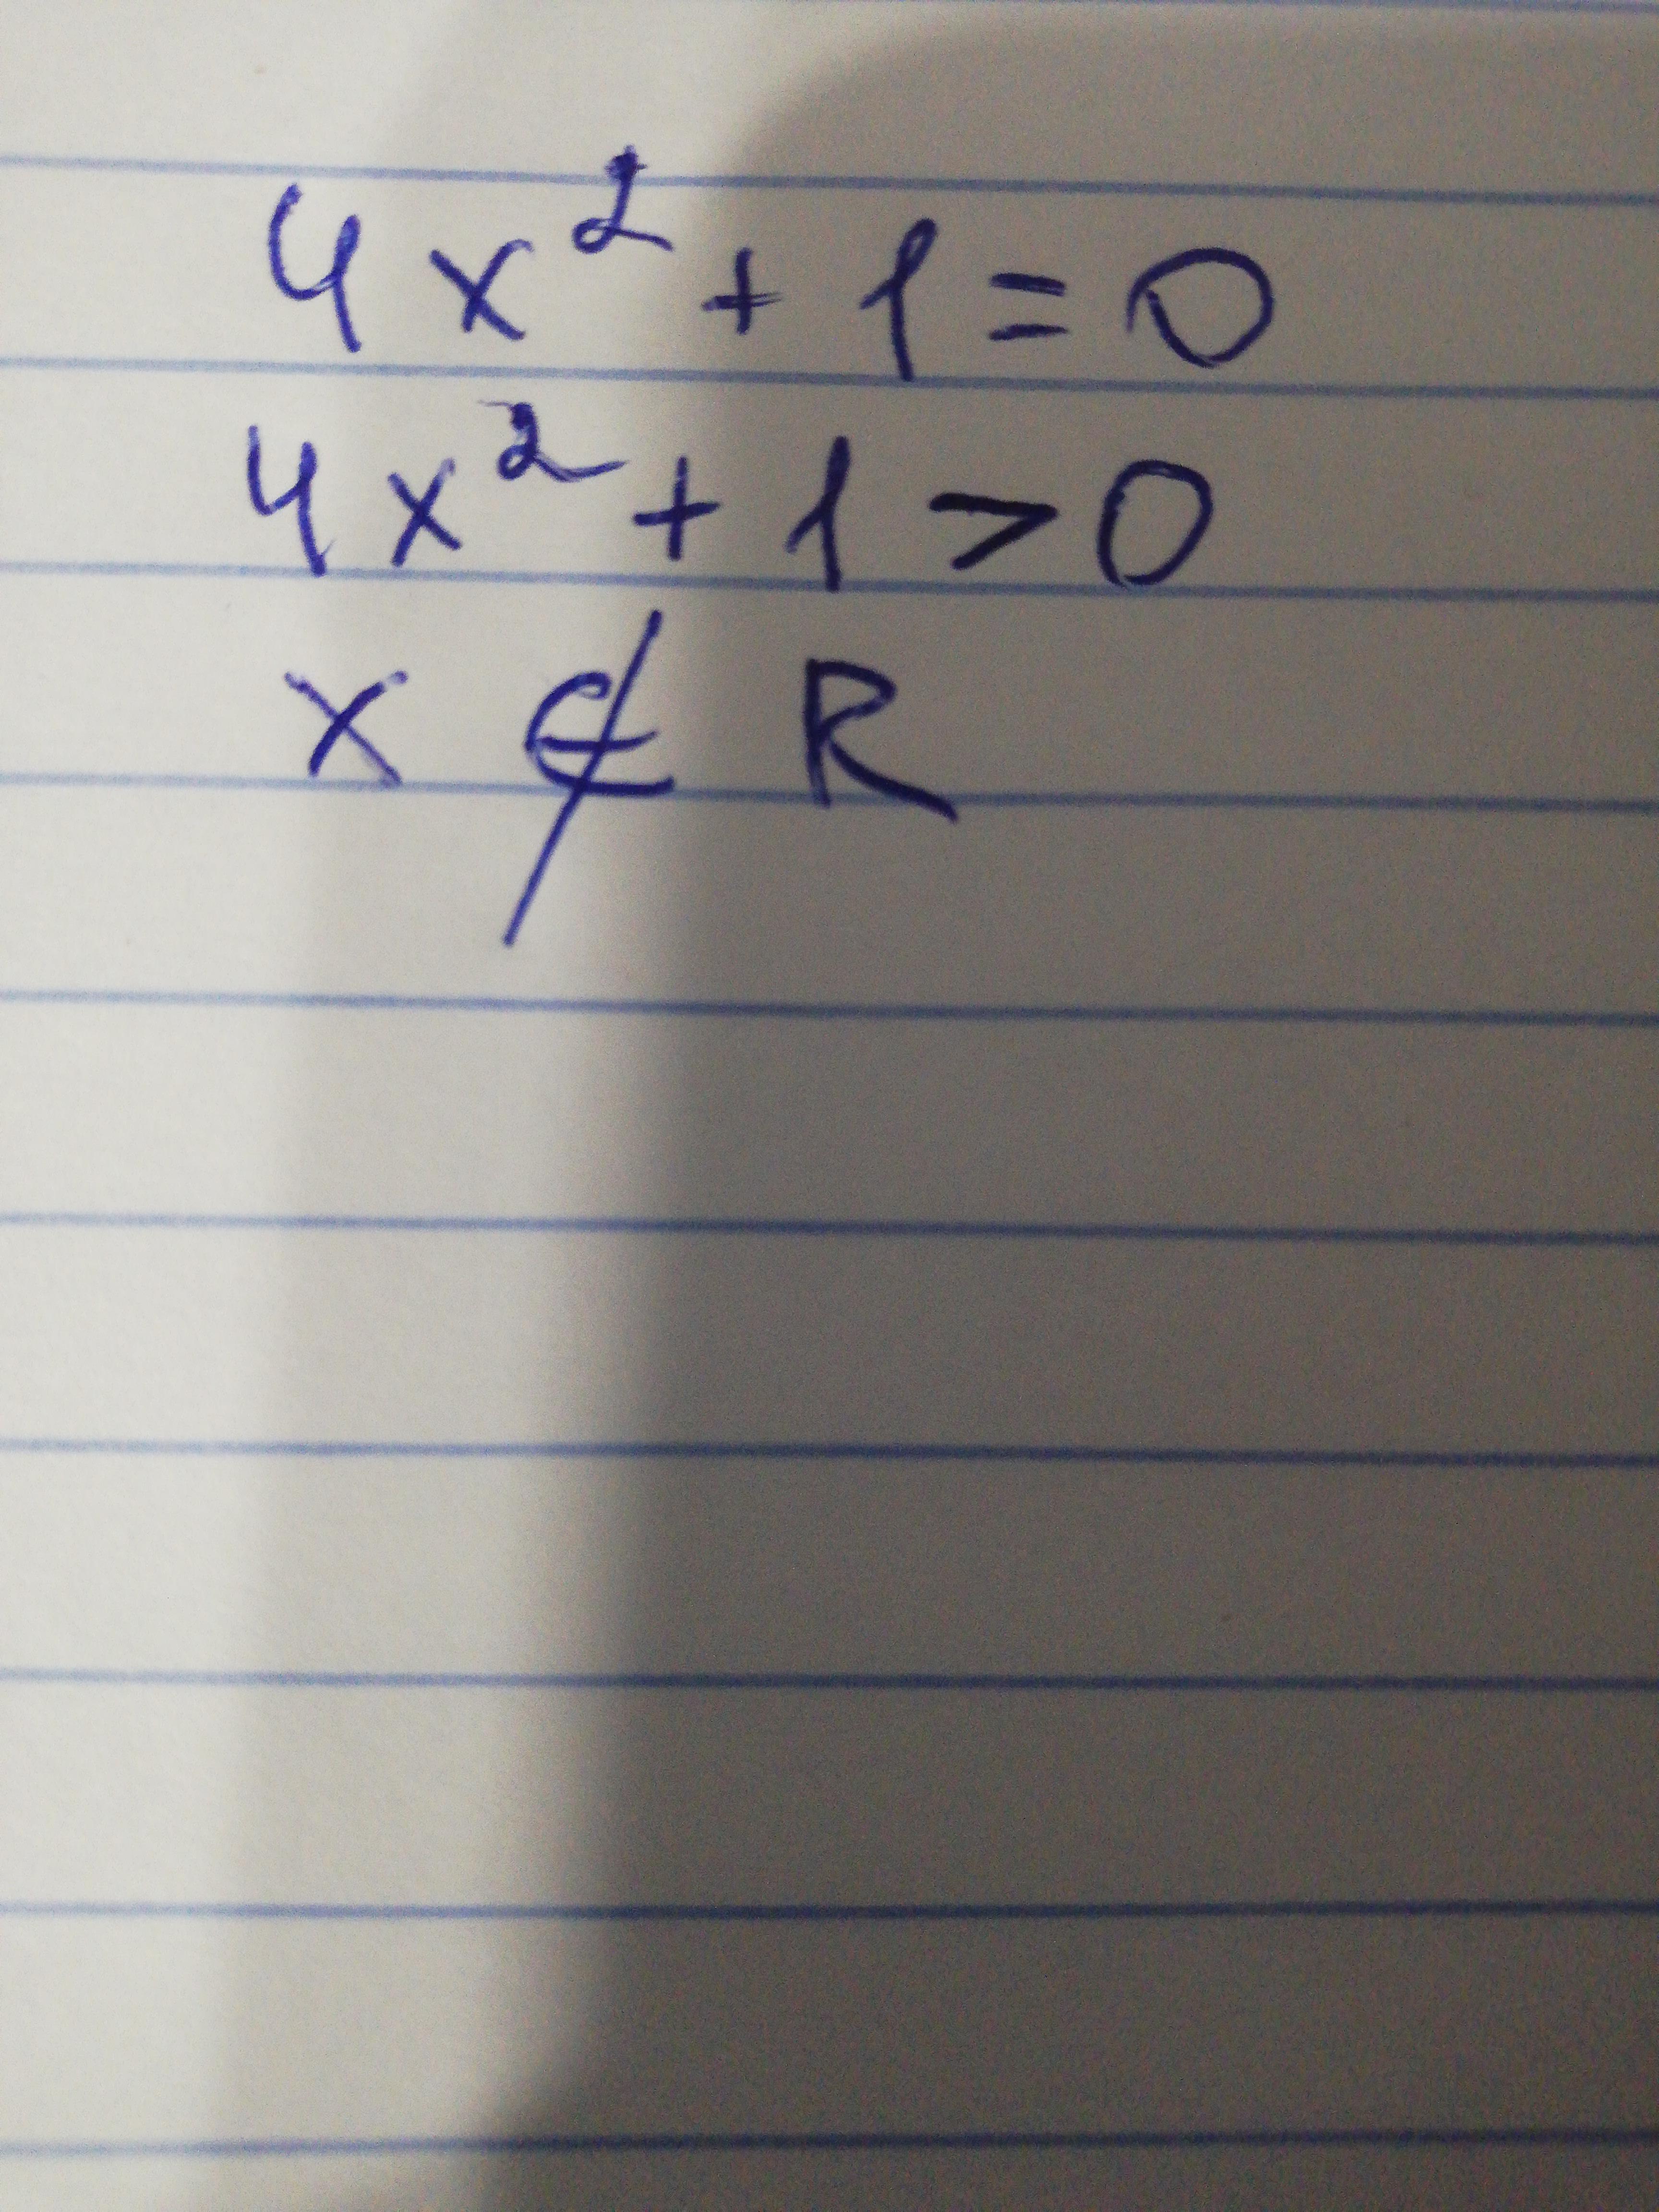 4x² + 1 = 0
4x² + 1 > 0
x ∉ R